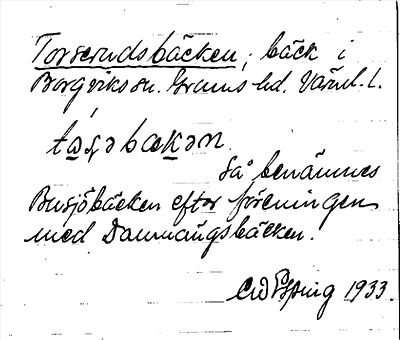 Torserudsbäcken, bäck i
Borgviks sn. Grums hd. Värml. l.
så benämnes
Busjöbäcken efter föreningen
med Danmangsbäcken.
1933.